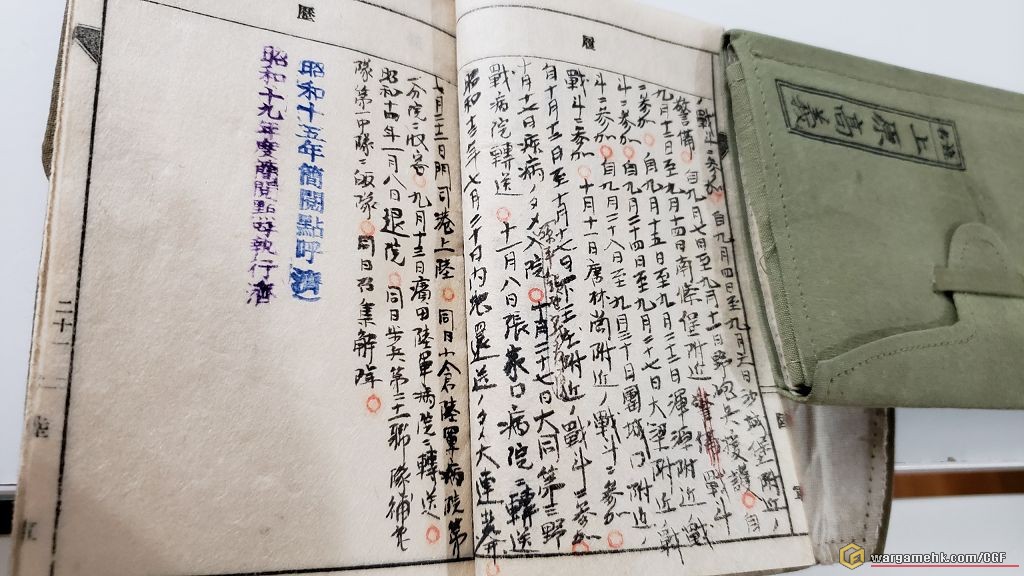 上原高義
履
ノ戰斗ニ参加 自九月四日至九月六日沙城堡附近ノ
警備 自九月七日至九月十二日野砲兵護衛 自
九月十三日至九月十四日南條程附近ノ警備戰斗
ニ参加 自九月十五日至九月二十三日渾源附近ノ戰
斗ニ参加 自九月二十四日至九月二十七日大梁附近ノ戰
斗ニ参加 自九月二十八日至九月三十日團城口附近ノ
戰斗ニ参加 十月十一日唐林崗附近ノ戰斗ニ参加
自十月十五日至十月十七日 附近ノ戰斗ニ参加
十月十七日 病ノタメ入院 十月二十七日大同第三野
戰病院轉送 十一月八日張家口病院ニ轉送
昭和 年七月二十日内地還送ノタメ大連港
歷
七月二十二日門司港上陸 同日小倉陸軍病院第
一分院ニ收容 九月十三日廣田陸軍病院ニ轉送
昭和十四年一月八日退院 同日步兵第二十一聯隊補充
隊第一中隊ニ皈隊 同日召集解除
昭和十五年簡閲點呼濟
昭和十九年度簡閲點呼執行濟
二十一
陸
軍
wargamehk.com/CGF